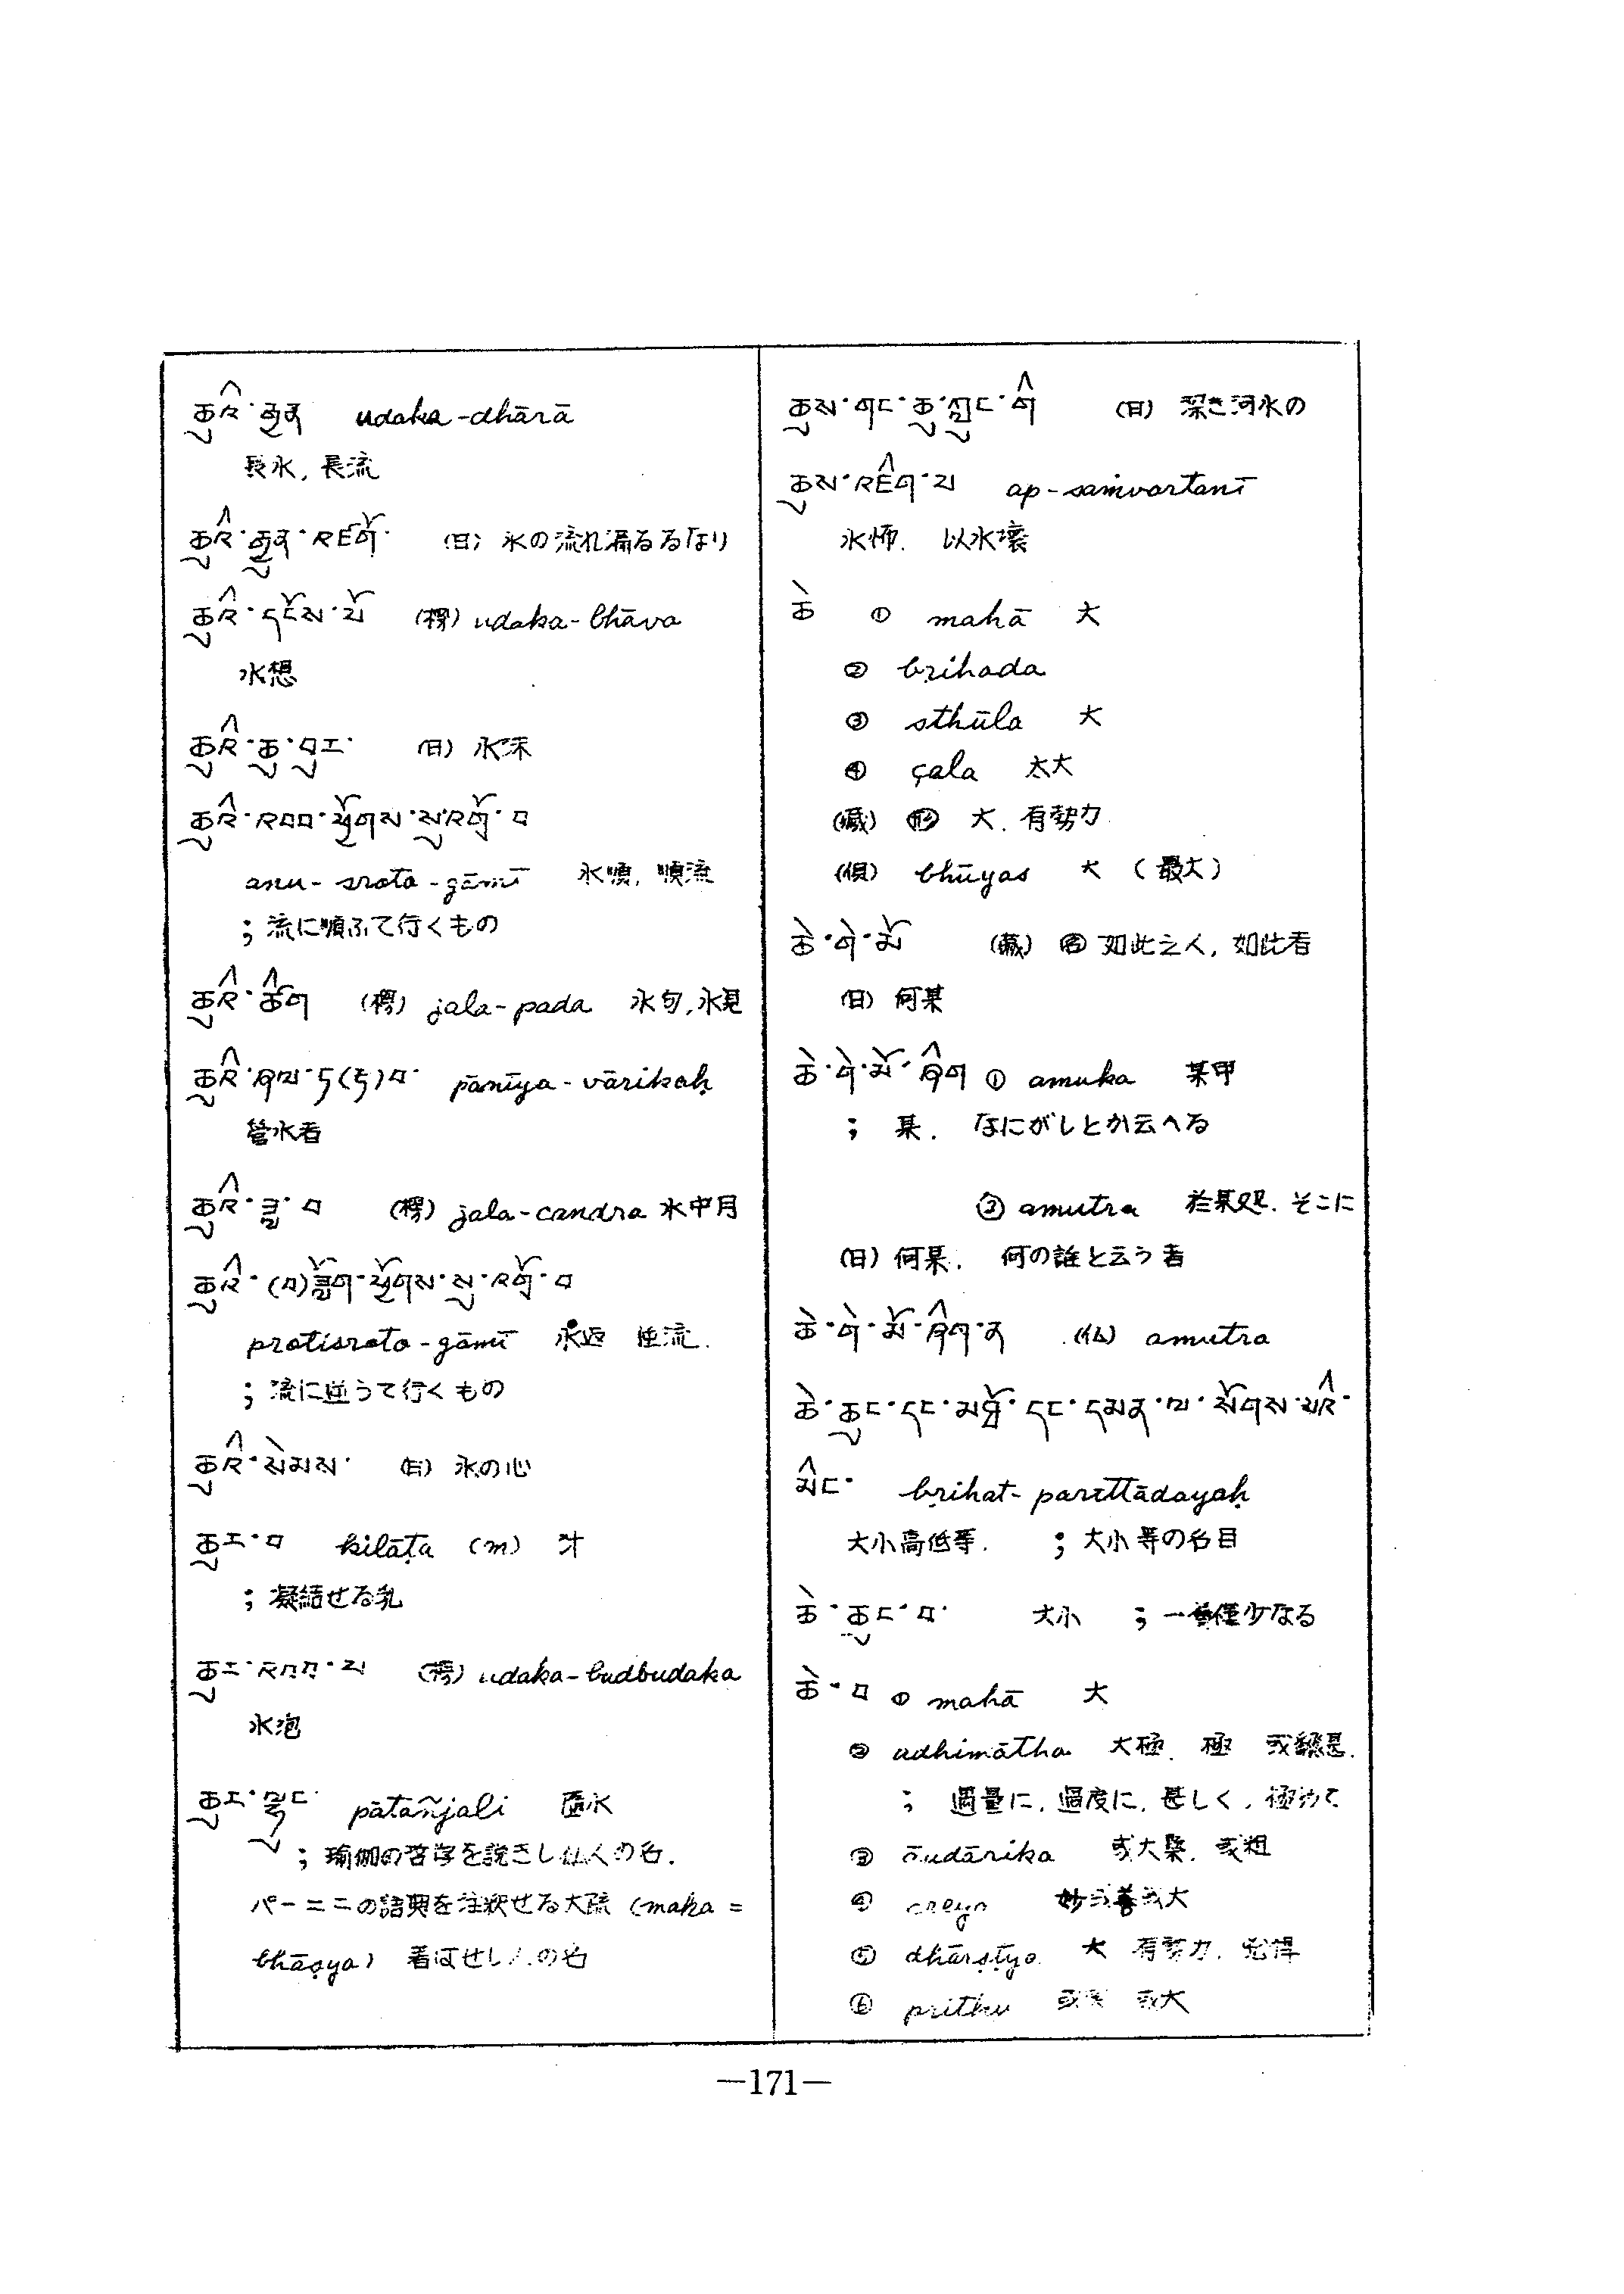 ཆུའི་རྒྱུན udaka-dhārā
長水, 長流
ཆུའི་རྒྱུན་འཛག་ (日) 水の流れ漏るるなり
ཆུའི་དངོས་པོ (榜) udaka-bhāva
水想
ཆུའི་ཆུ་བུར་ (日) 水沫
ཆུའི་འབབ་ཕྱོགས་སུ་འགྲོ་བ
anu-srota-gāmī 水順, 順流
; 流に順ふて行くもの
ཆུའི་ཚིག (榜) jala-pada 水句, 水見
ཆུའི་ཞལ་ཏ(ཏ)བ་ pānīya-vārikaḥ
管水者
ཆུའི་ཟླ་བ (榜) jala-candra 水中月
ཆུའི་(བ)ཟློག་ཕྱོགས་སུ་འགྲོ་བ
pratisrota-gāmī 水返 逆流.
; 流に逆うて行くもの
ཆུའི་སེམས་ (日) 水の心
ཆུར་བ kilāṭa (m)
; 凝結せる乳
ཆུར་འབབ་པ (榜) udaka-budbudaka
水泡
ཆུར་ལྷུང་ pātañjali 堕水
; 瑜伽の哲学を説きし仙人の名.
パーニニの語典を注釈せる大疏 (maha=
bhāṣya) 著はせし人の名
ཆུས་གང་ཆུ་ཀླུང་གི (日) 深き河水の
ཆུས་འཇིག་པ ap-saṁvartanī
水怖. 以水壊
ཆེ ① mahā 大
② bṛihada
③ sthūla 大
④ çala 太大
(蔵) 形 大. 有勢力
(倶) bhūyas 大 (最大)
ཆེ་གེ་མོ (蔵) 名 如此之人, 如此者
(日) 何某
ཆེ་གེ་མོ་ཞིག ① amuka 某甲
; 某. なにがしとか云へる
② amutra 於某処. そこに
(日) 何某. 何の誰と云う者
ཆེ་གེ་མོ་ཞིག་ན (仏) amutra
ཆེ་ཆུང་དང་མཐོ་དང་དམན་ལ་སོགས་པའི་
མིང་ bṛihat-parīttādayaḥ
大小高低等. ; 大小等の名目
ཆེ་ཆུང་བ་ 大小 ; 一番僅少なる
ཆེ་བ ① mahā 大
② adhimātha 大極. 極
; 過量に, 過度に, 甚しく, 極めて
③ āudārika 或大麁. 或粗
④ çreya 妙或善或大
⑤ dhārṣṭya 大 有勢力.
⑥ prithu 或大
—171—